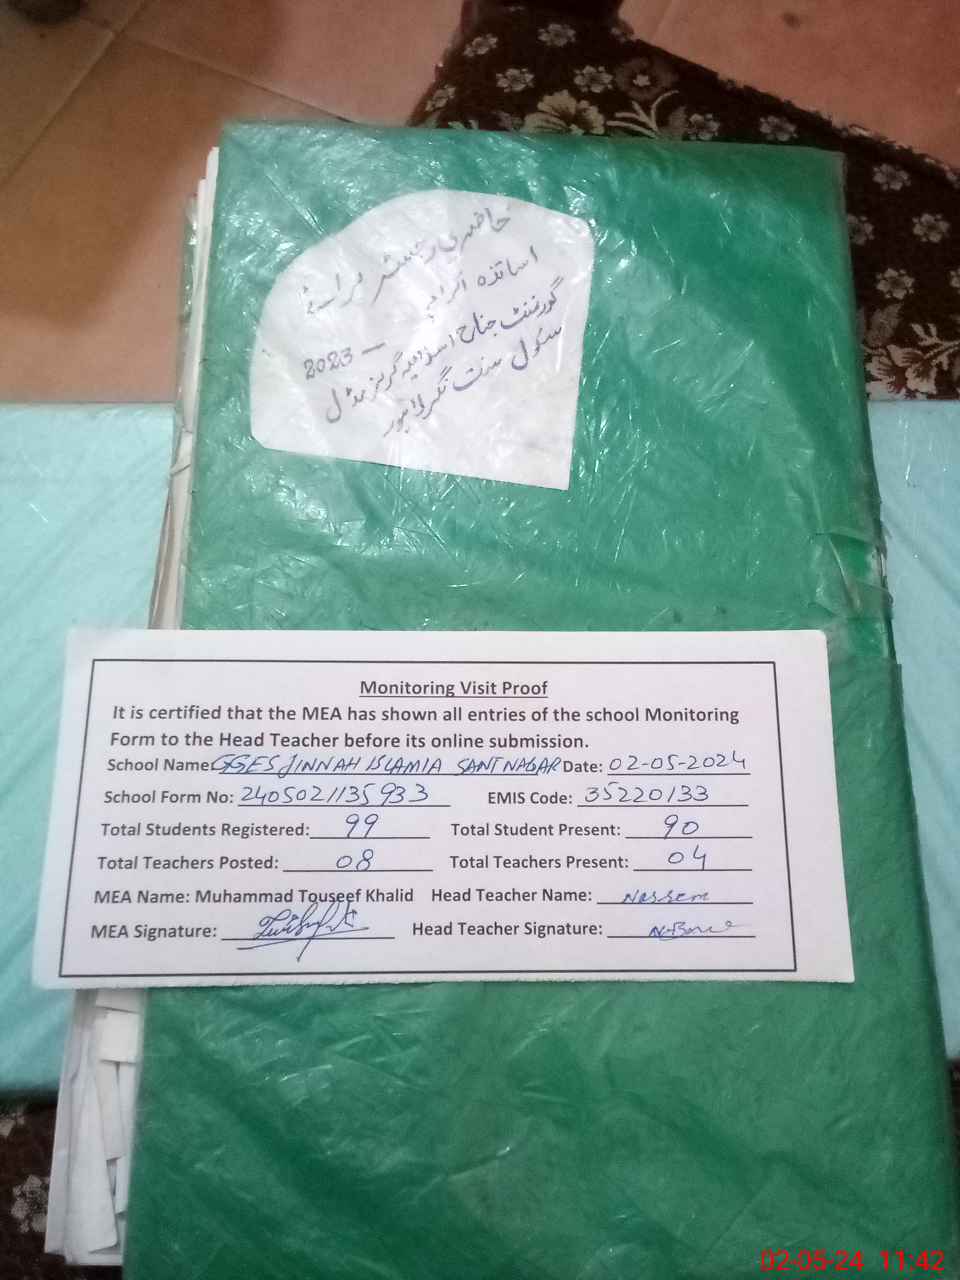 حاضری رجسٹر برائے
اساتذہ اکرام
2023 —
گورنمنٹ جناح اسلامیہ گرلز مڈل
سکول سنت نگر لاہور
Monitoring Visit Proof
It is certified that the MEA has shown all entries of the school Monitoring
Form to the Head Teacher before its online submission.
School Name: GGES JINNAH ISLAMIA SANT NAGAR Date: 02-05-2024
School Form No: 2405021135933 EMIS Code: 35220133
Total Students Registered: 99 Total Student Present: 90
Total Teachers Posted: 08 Total Teachers Present: 04
MEA Name: Muhammad Touseef Khalid Head Teacher Name: Nassem
MEA Signature: Head Teacher Signature:
02-05-24 11:42